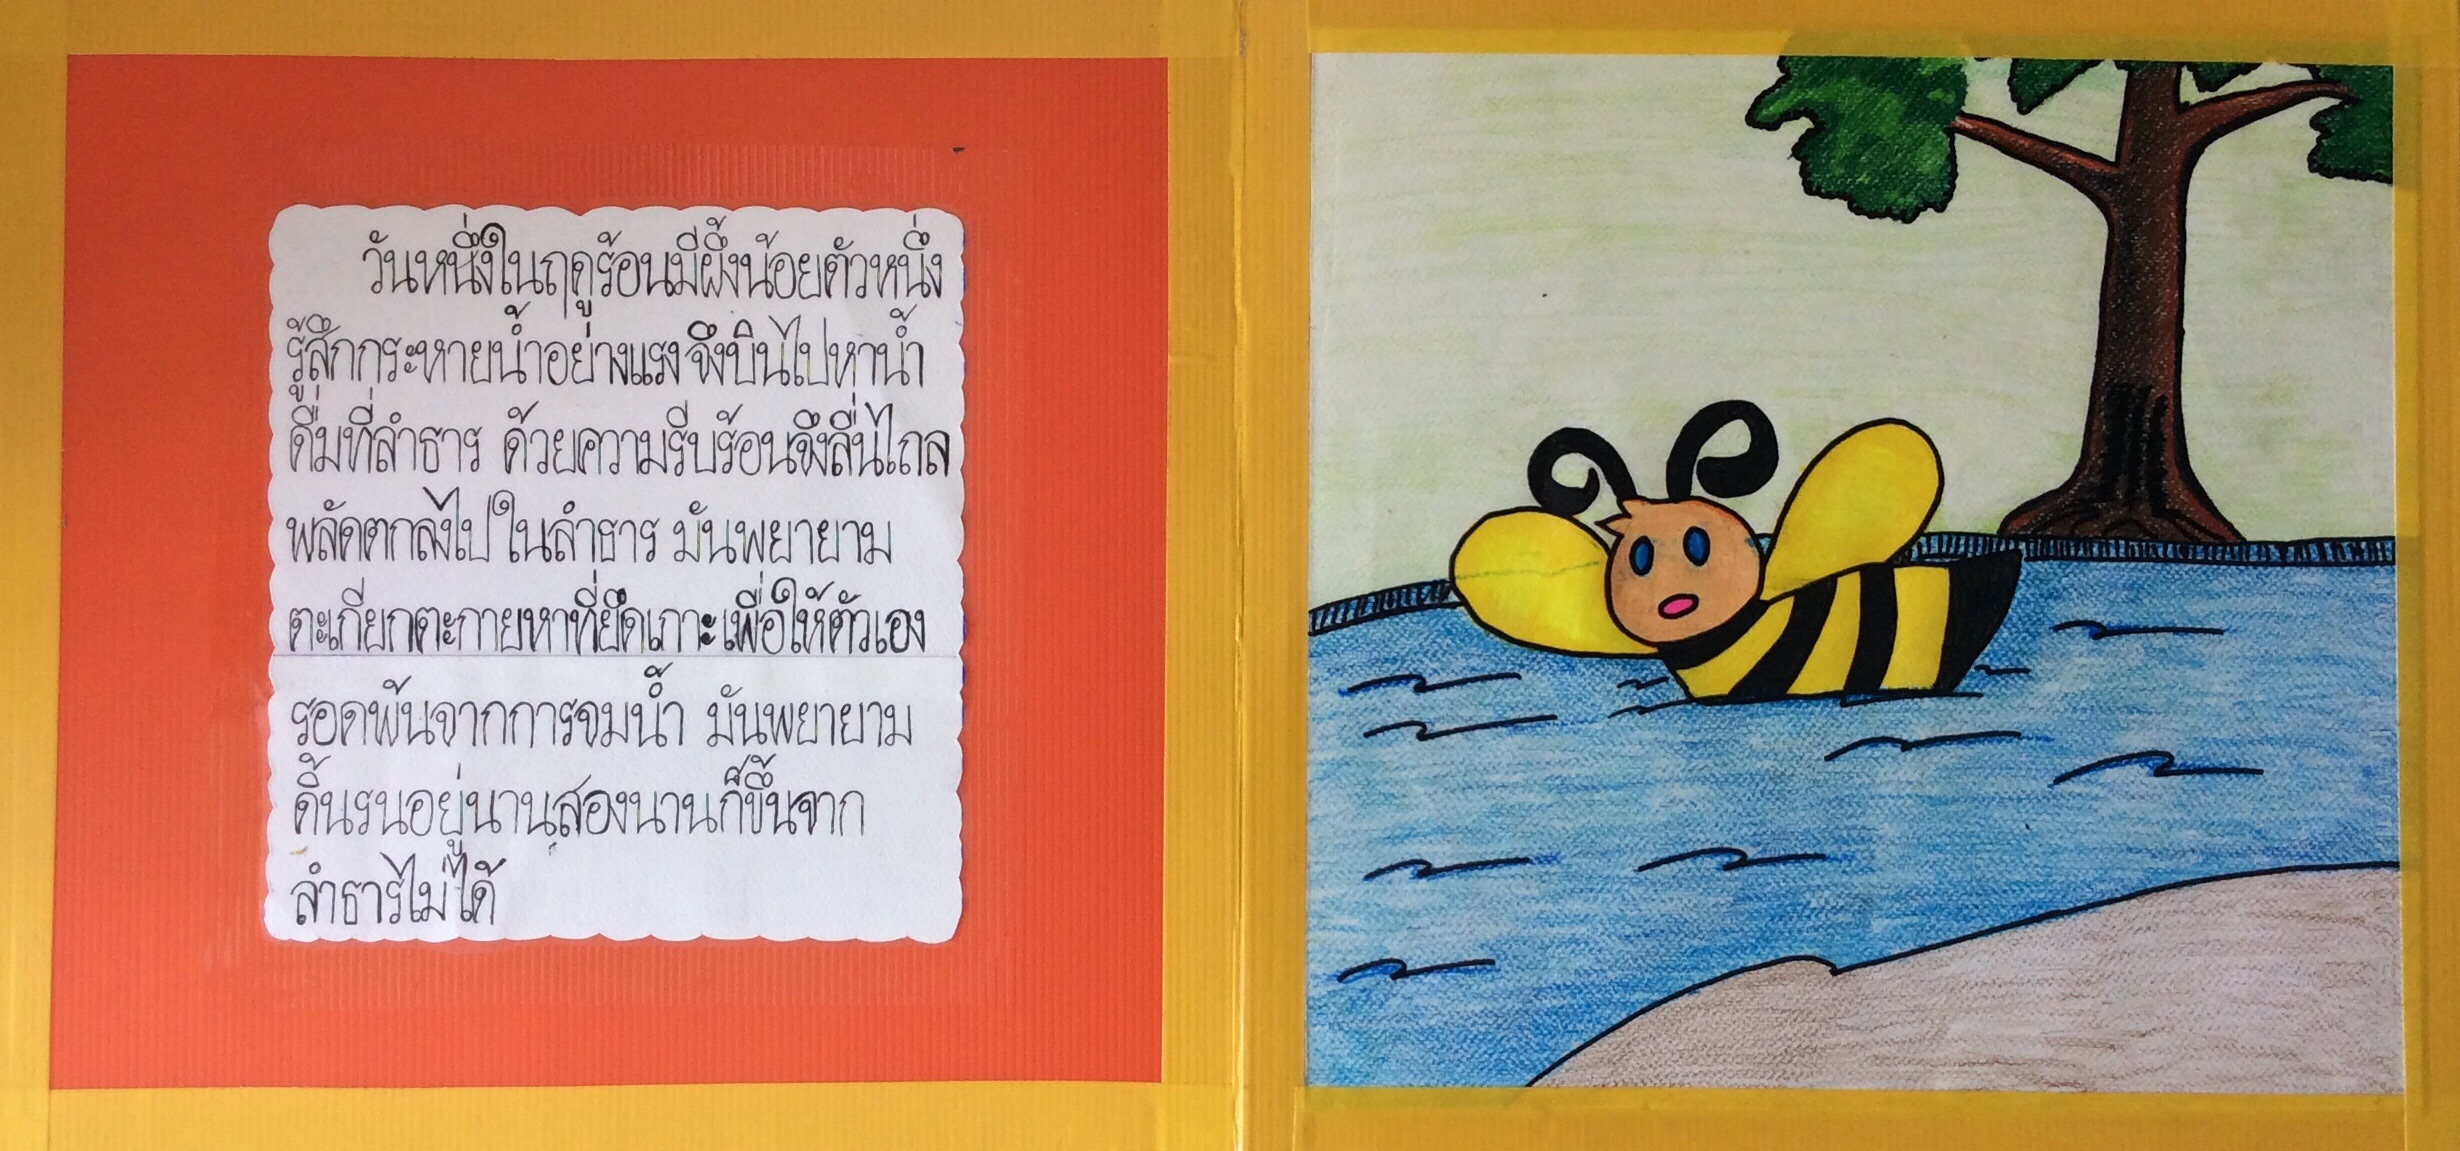 วันหนึ่งในฤดูร้อนมีผึ้งน้อยตัวหนึ่ง
รู้สึกกระหายน้ำอย่างแรงจึงบินไปหาน้ำ
ดื่มที่ลำธาร ด้วยความรีบร้อนจึงลื่นไถล
พลัดตกลงไปในลำธาร มันพยายาม
ตะเกียกตะกายหาที่ยึดเกาะเพื่อให้ตัวเอง
รอดพ้นจากการจมน้ำ มันพยายาม
ดิ้นรนอยู่นานสองนานก็ขึ้นจาก
ลำธารไม่ได้